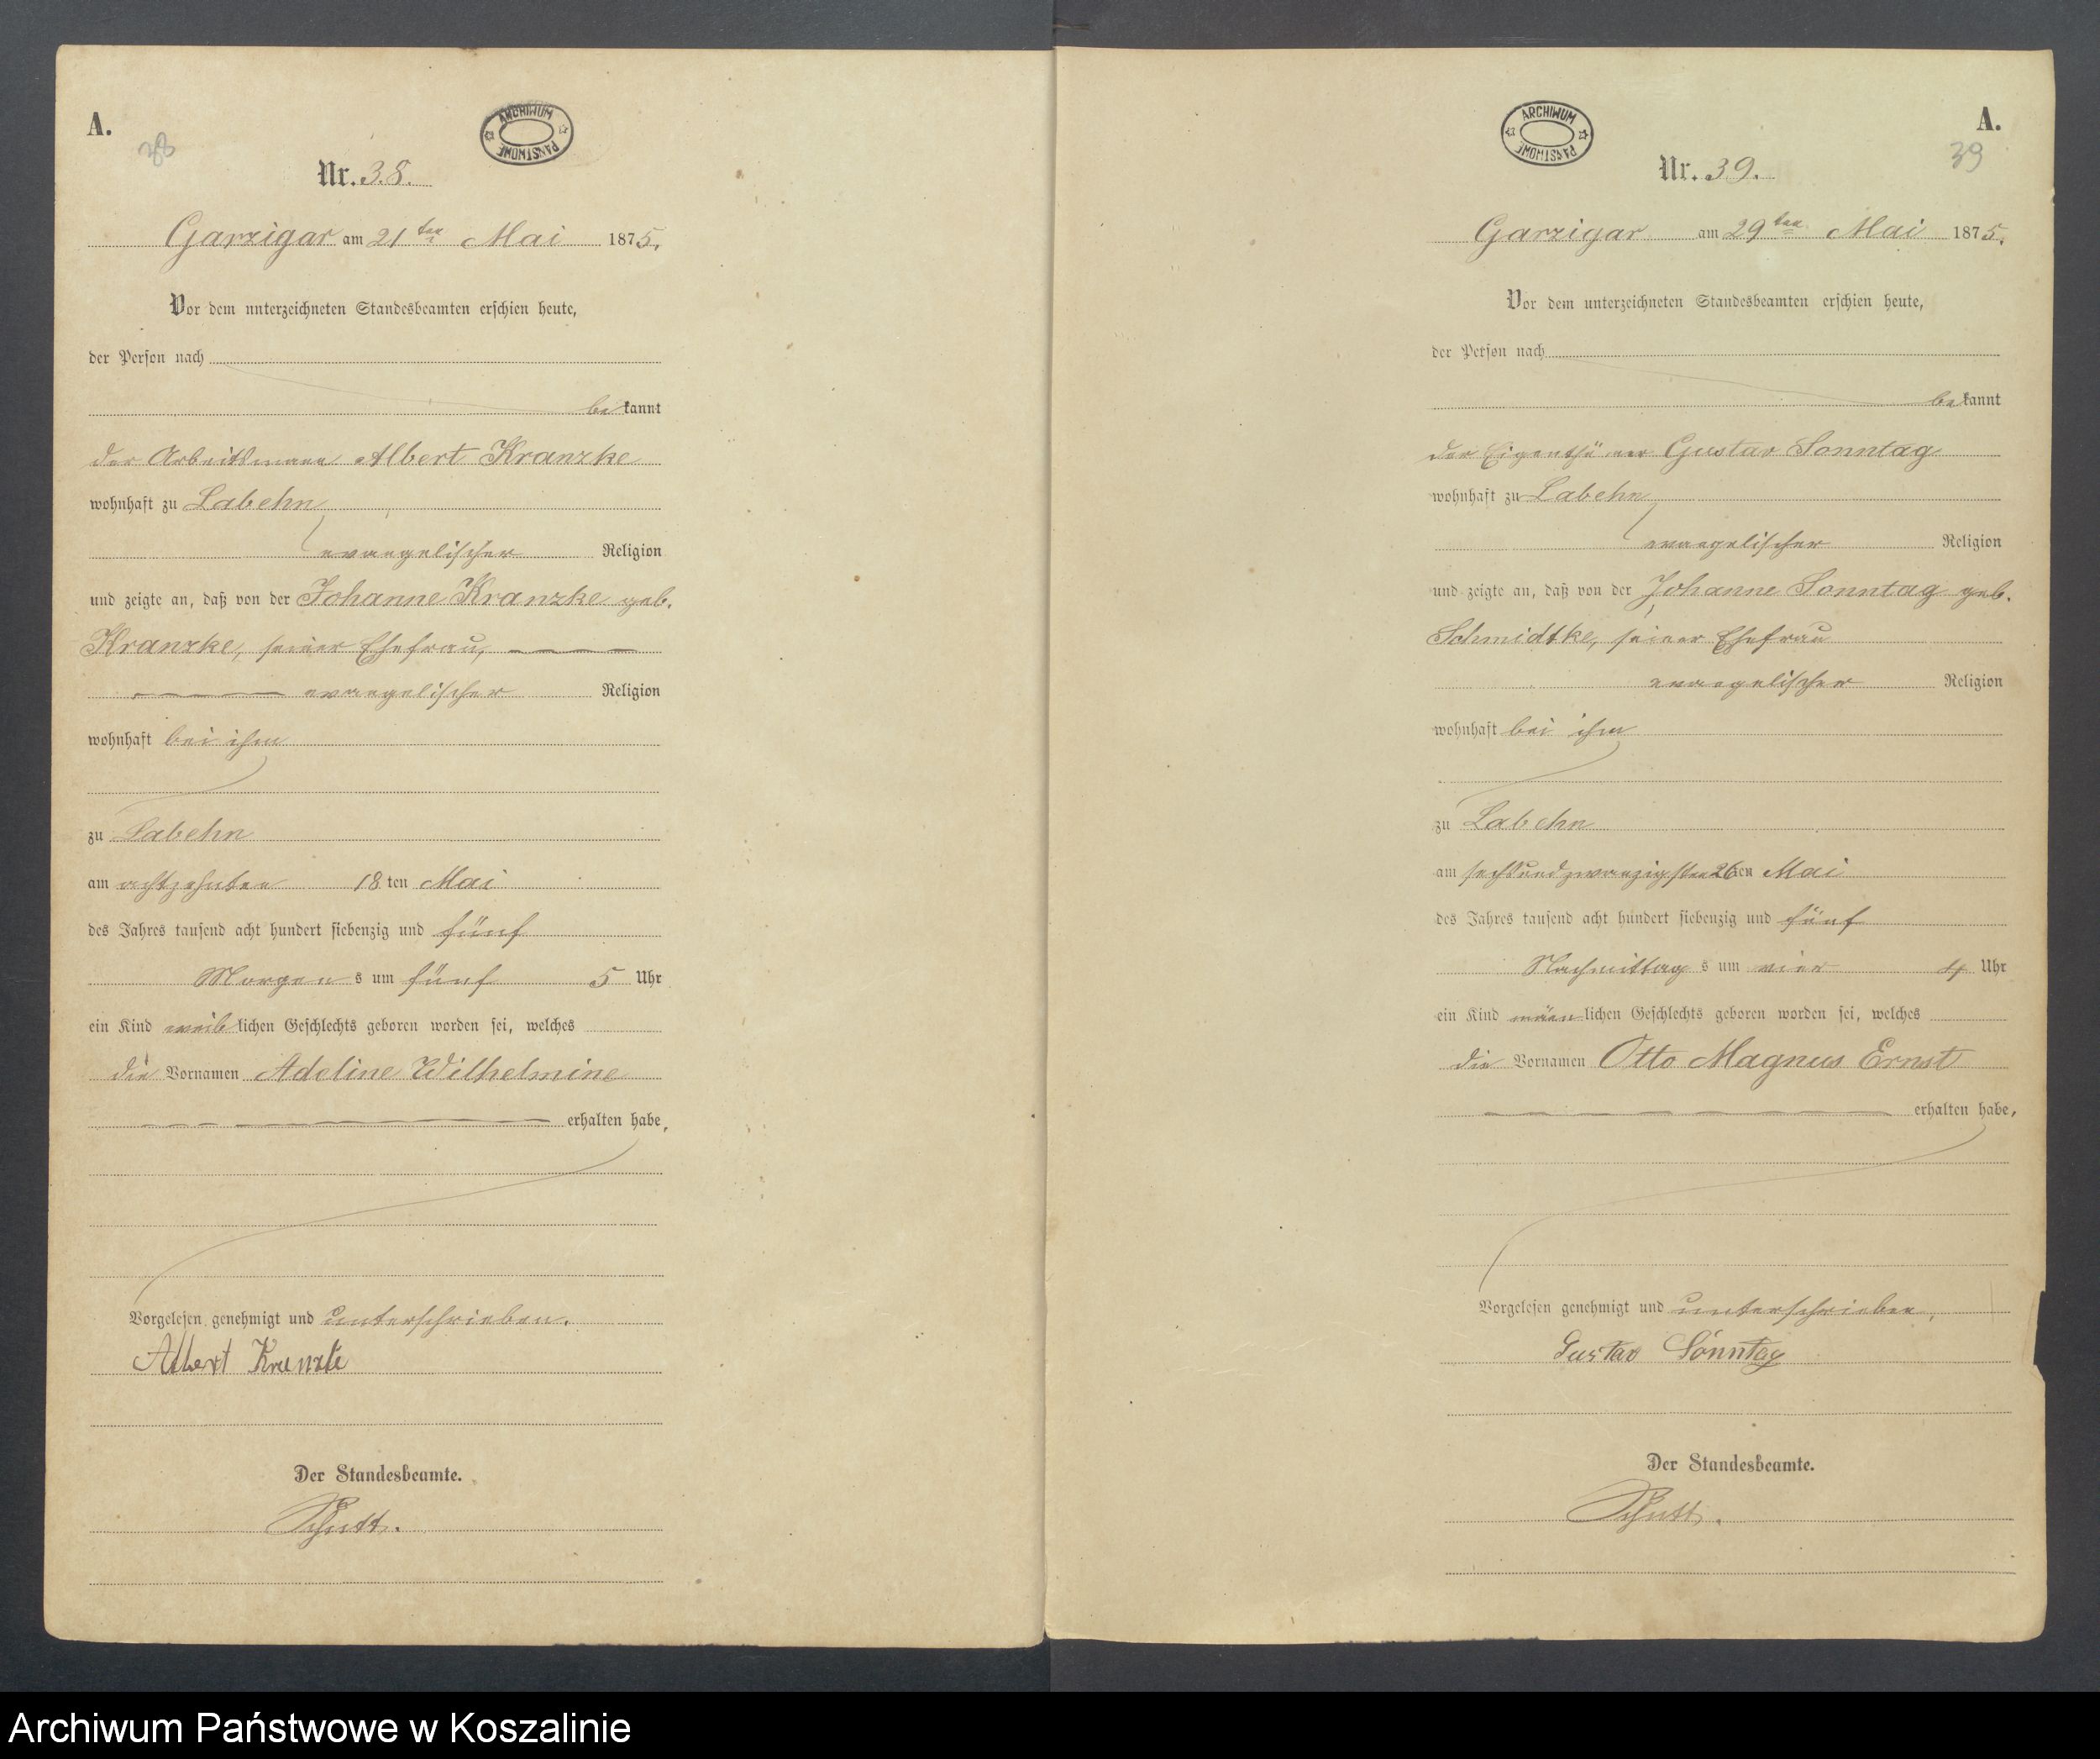 A.
38
ARCHIWUM PAŃSTWOWE
Nr. 38.
Garzigar am 21ten Mai 1875.
Vor dem unterzeichneten Standesbeamten erschien heute,
der Person nach
bekannt
der Arbeitsmann Albert Kranzke
wohnhaft zu Labehn
evangelischer Religion
und zeigte an, daß von der Johanne Kranzke geb.
Kranzke, seiner Ehefrau,
evangelischer Religion
wohnhaft bei ihm
zu Labehn
am achtzehnten 18 ten Mai
des Jahres tausend acht hundert siebenzig und fünf
Morgens um fünf 5 Uhr
ein Kind weiblichen Geschlechts geboren worden sei, welches
die Vornamen Adeline Wilhelmine
erhalten habe,
Vorgelesen genehmigt und unterschrieben.
Albert Kranzke
Der Standesbeamte.
A.
39
ARCHIWUM PAŃSTWOWE
Nr. 39.
Garzigar am 29ten Mai 1875.
Vor dem unterzeichneten Standesbeamten erschien heute,
der Person nach
bekannt
der Eigenthümer Gustav Sonntag
wohnhaft zu Labehn
evangelischer Religion
und zeigte an, daß von der Johanne Sonntag geb.
Schmidtke, seiner Ehefrau
evangelischer Religion
wohnhaft bei ihm
zu Labehn
am sechsundzwanzigsten 26ten Mai
des Jahres tausend acht hundert siebenzig und fünf
Nachmittags um vier 4 Uhr
ein Kind männlichen Geschlechts geboren worden sei, welches
die Vornamen Otto Magnus Ernst
erhalten habe,
Vorgelesen genehmigt und unterschrieben,
Gustav Sonntag
Der Standesbeamte.
Archiwum Państwowe w Koszalinie